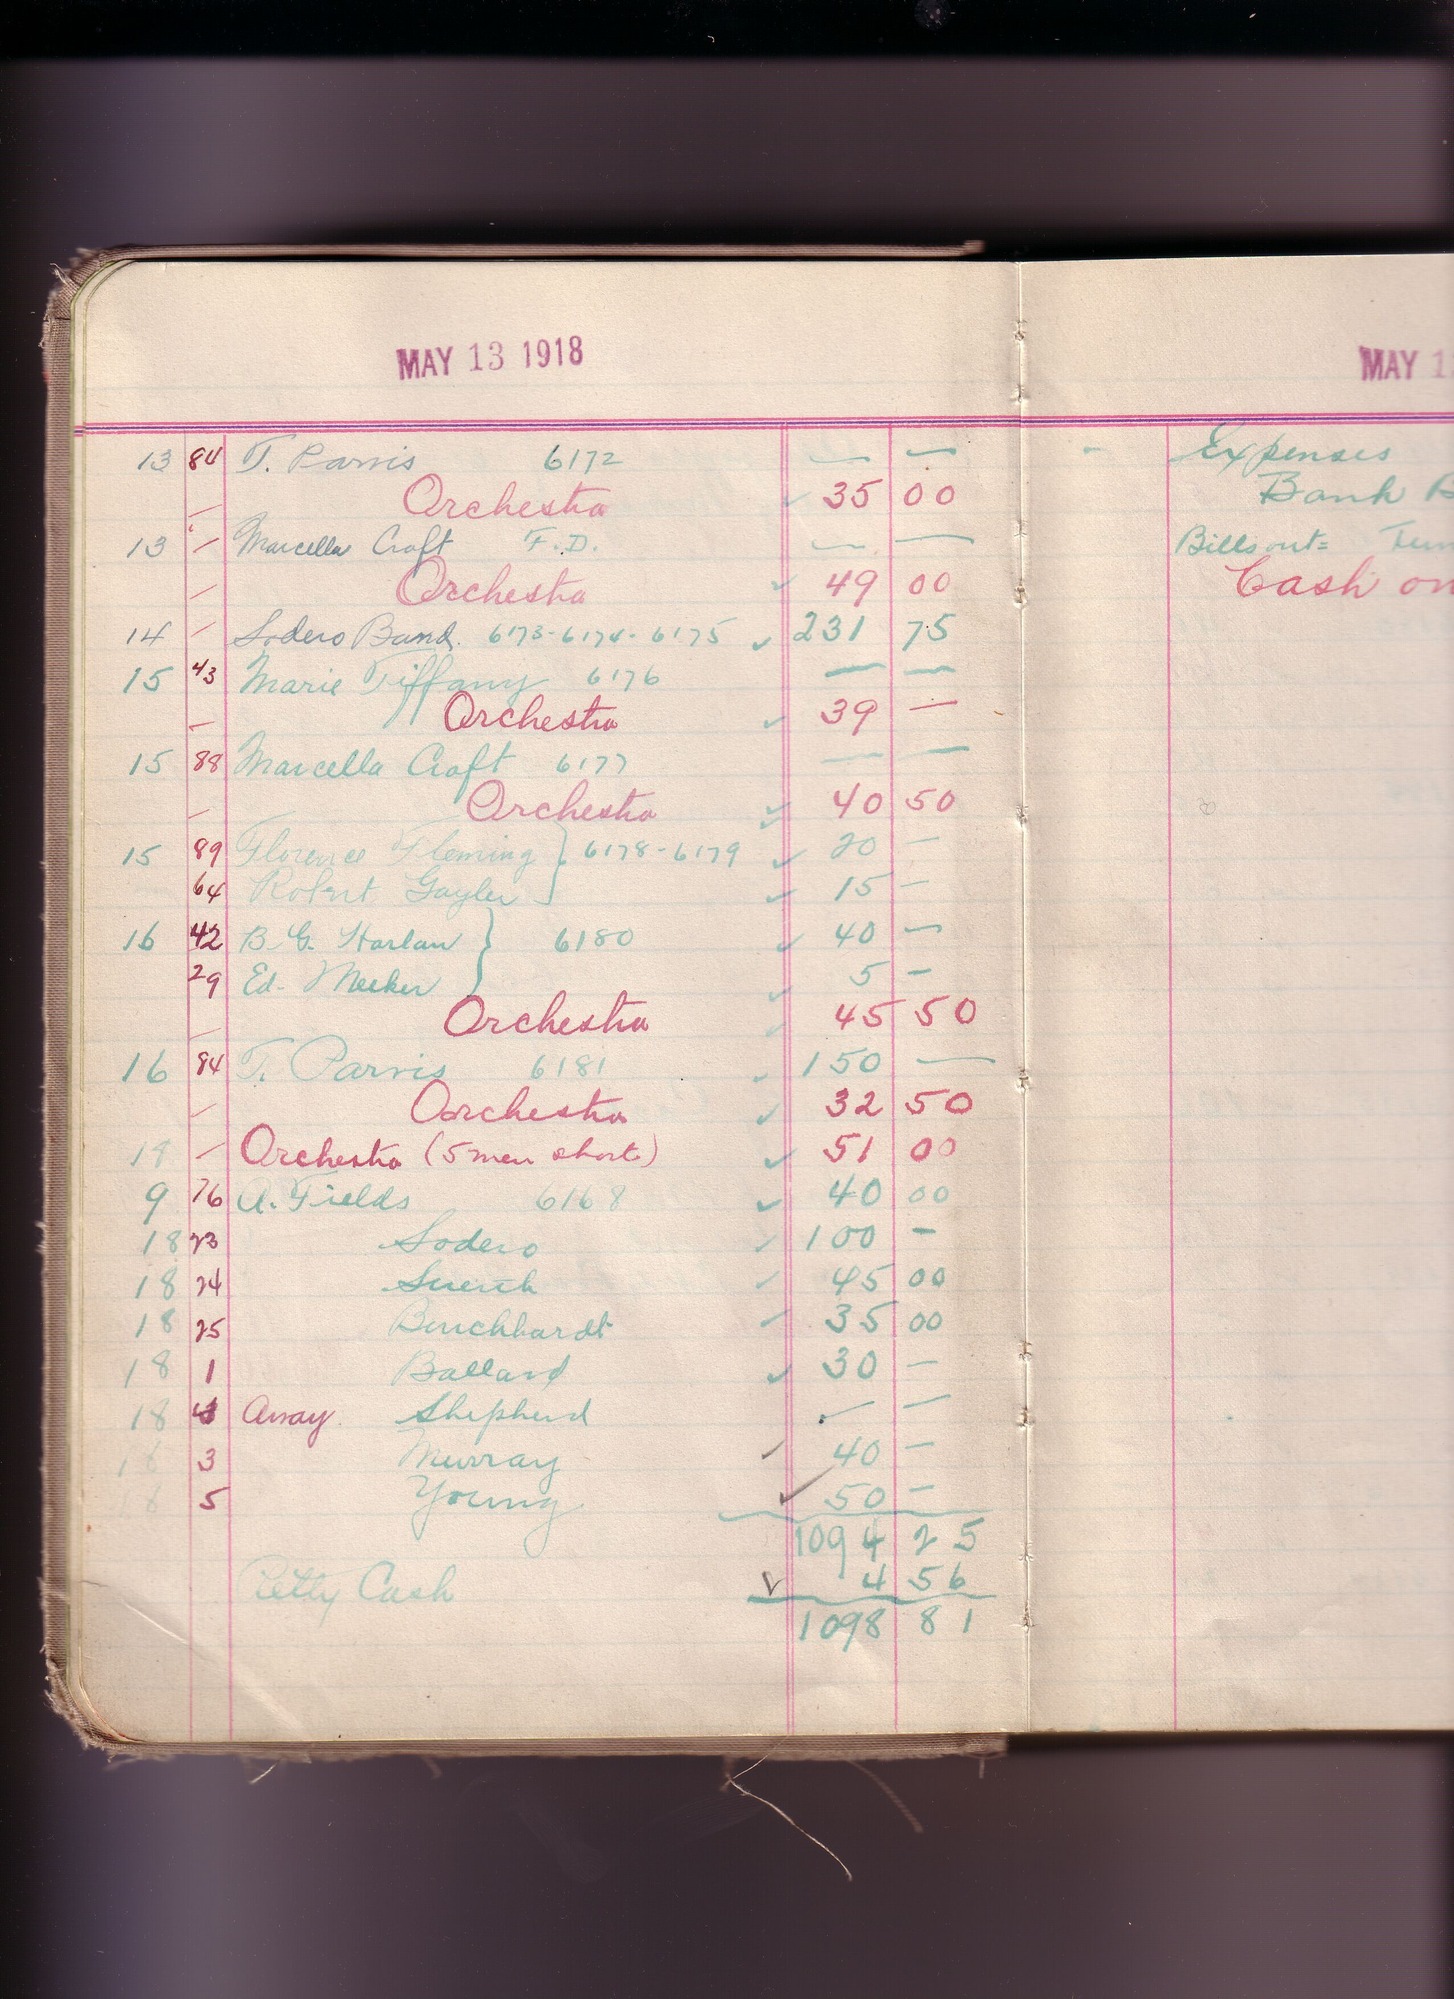 MAY 13 1918
13 84 T. Parvis 6172 — —
— Orchestra ✓ 35 00
13 — Marcella Craft F.D. — —
— Orchestra ✓ 49 00
14 — Sodero Band. 6173-6174-6175 ✓ 231 75
15 43 Marie Tiffany 6176 — —
— Orchestra ✓ 39 —
15 88 Marcella Craft 6177 — —
— Orchestra ✓ 40 50
15 89 Florence Fleming } 6178-6179 ✓ 20 —
64 Robert Gayler ✓ 15 —
16 42 B.G. Harlan } 6180 ✓ 40 —
29 Ed. Meeker ✓ 5 —
— Orchestra ✓ 45 50
16 84 T. Parvis 6181 ✓ 150 —
— Orchestra ✓ 32 50
18 — Orchestra (5 men short) ✓ 51 00
9 76 A. Fields 6168 ✓ 40 00
18 23 Sodero ✓ 100 —
18 24 ✓ 45 00
18 25 Burckhardt ✓ 35 00
18 1 Ballard ✓ 30 —
18 4 Away. Shepherd — —
18 3 Murray ✓ 40 —
18 5 Young ✓ 50 —
1094 25
Petty Cash ✓ 4 56
1098 81
MAY 1
Expenses
Bank B
Bills out=
Cash on